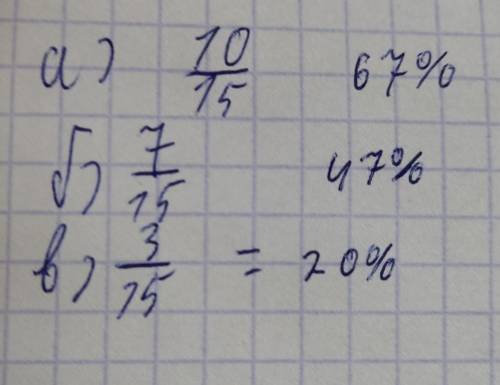 а) 10/15 67%
б) 7/15 47%
в) 3/15 = 20%